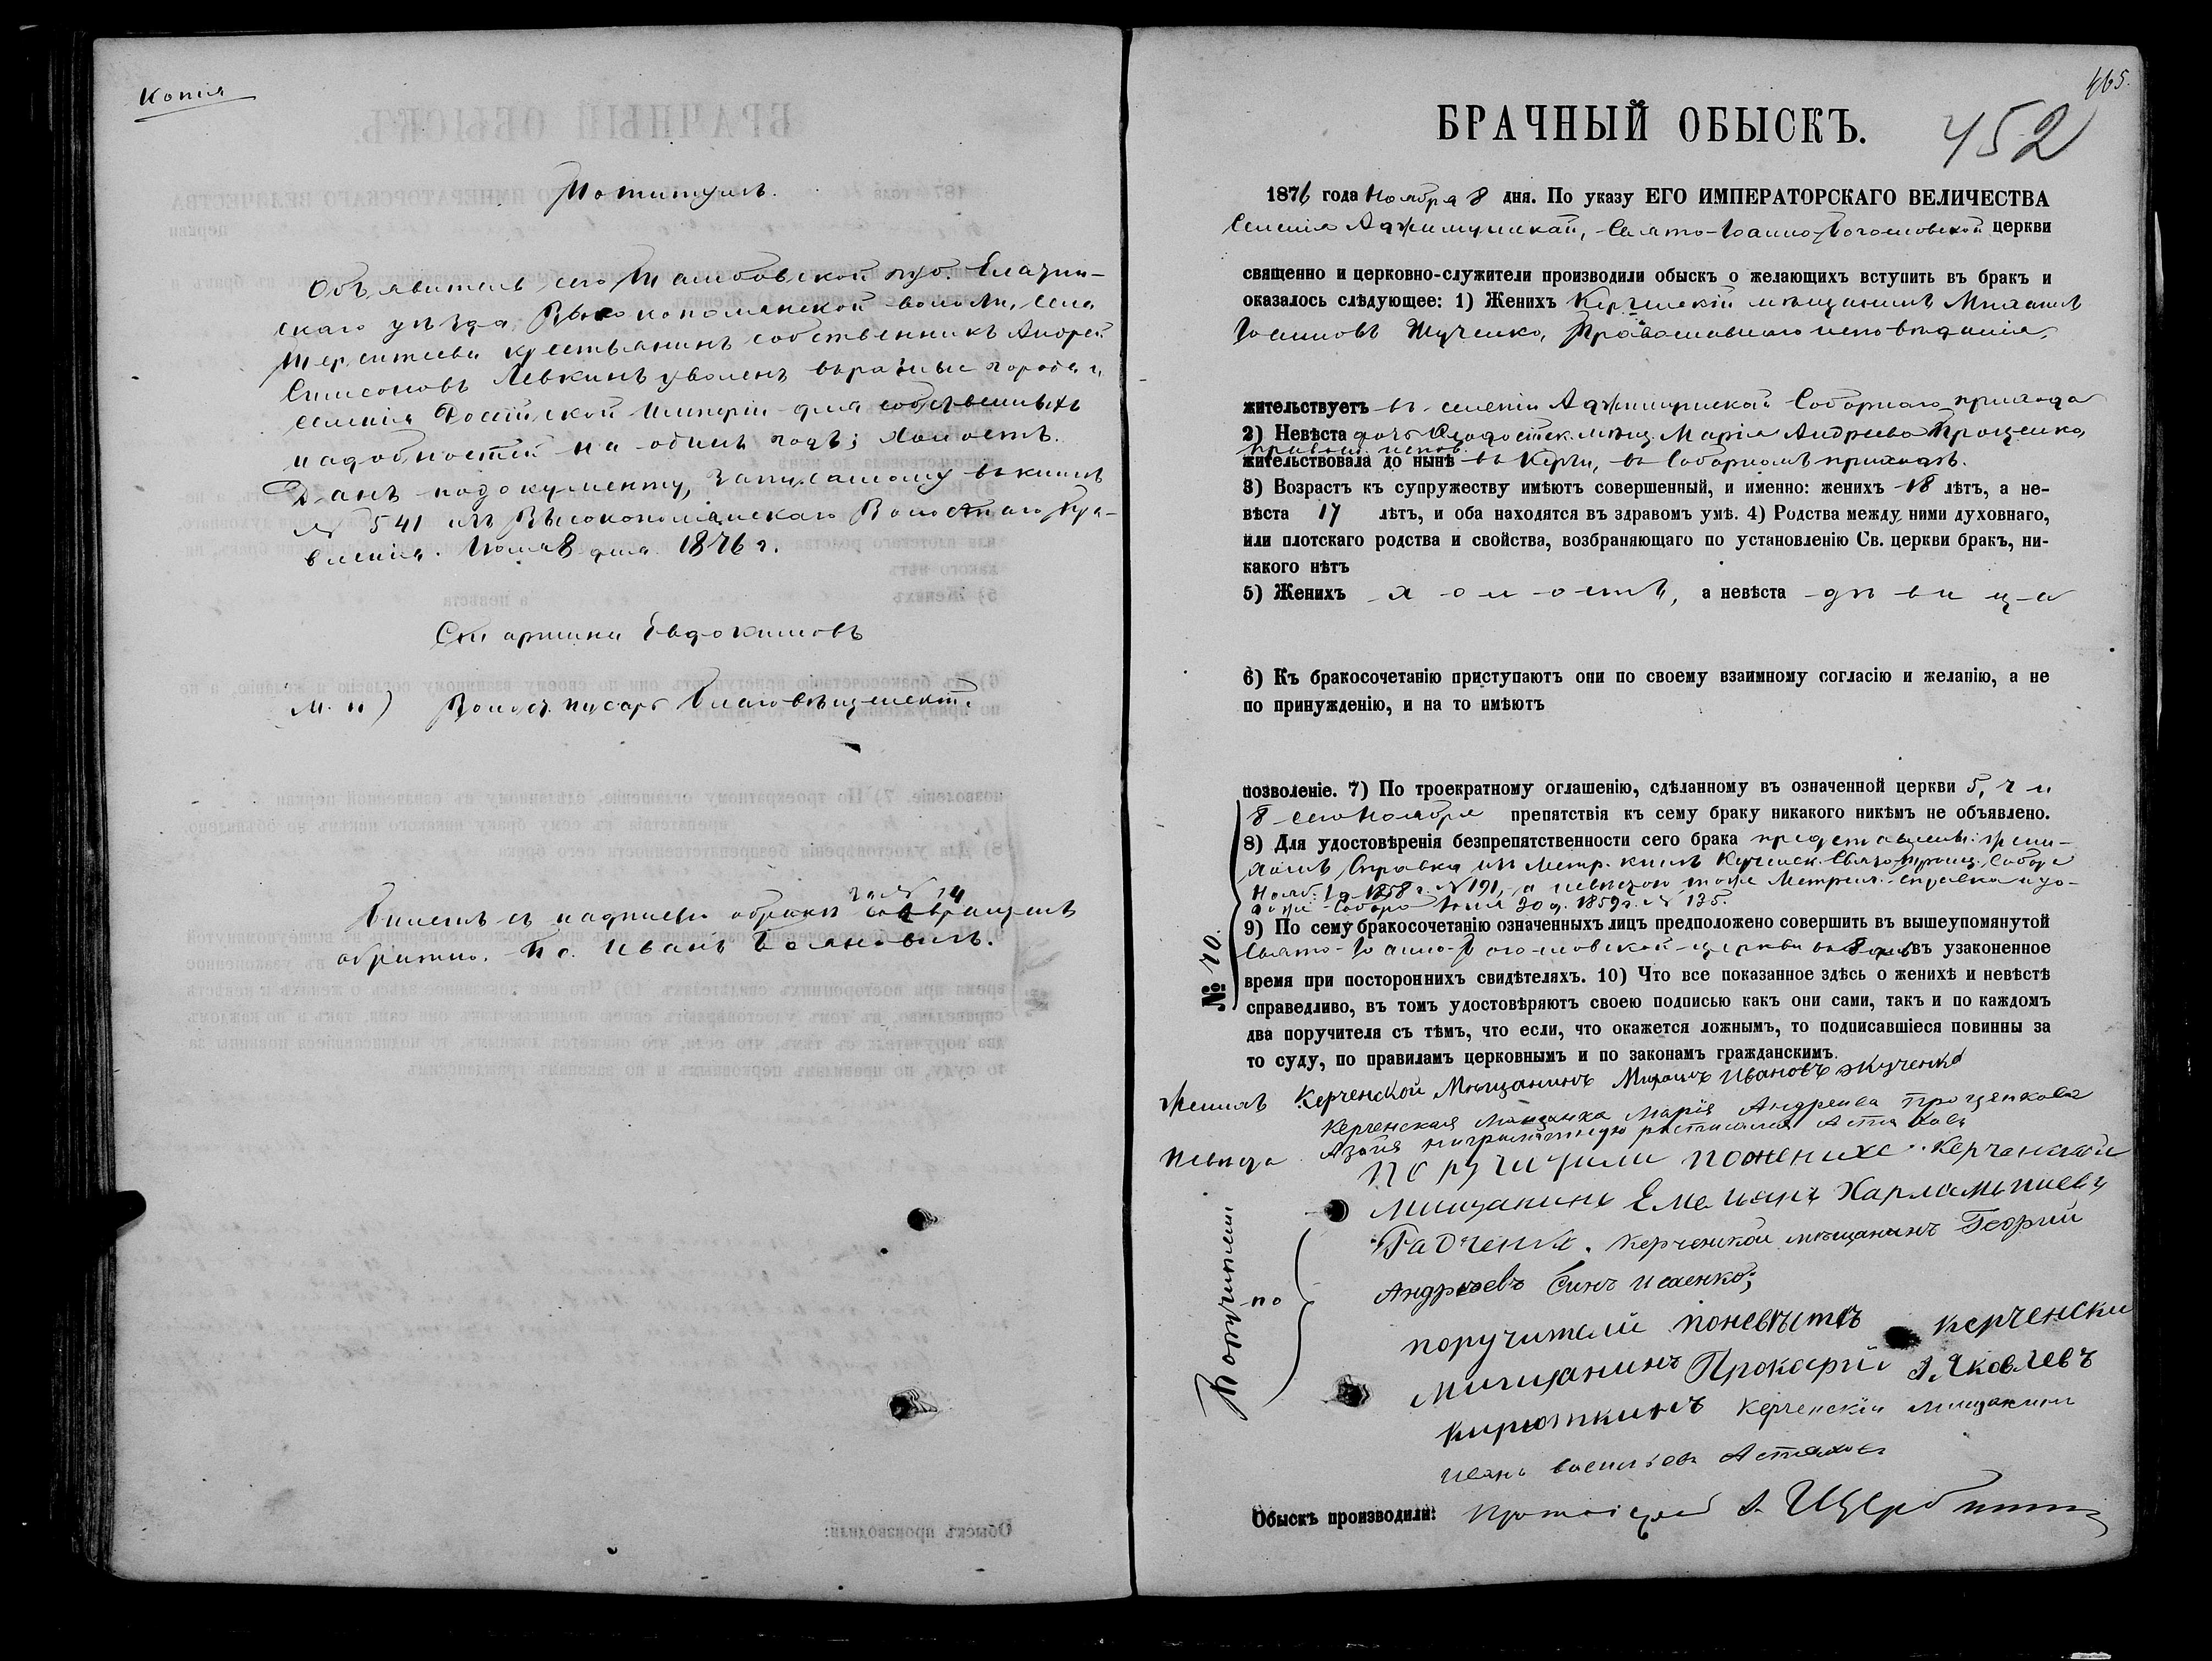 Копія
Объявитель сего Тамбовской губ. Елатом-
скаго уѣзда, волости, села
крестьянинъ собственникъ Андрей
Левкинъ уволенъ въ разные города и
селенія Россійской Имперіи для собственныхъ
надобностей на одинъ годъ; холостъ.
Данъ по документу, записанному въ книгѣ
№ 541 изъ Волостнаго Пра-
вленія. 8 дня 1876 г.
Старшина Евдокимовъ
М. п) Волост. писарь Благовѣщенскій.
за № 14
Билетъ съ надписью о бракѣ возвращенъ
обратно. Иванъ
465.
БРАЧНЫЙ ОБЫСКЪ.
452
1876 года Ноября 8 дня. По указу ЕГО ИМПЕРАТОРСКАГО ВЕЛИЧЕСТВА
Селенія Аджимушкай, Свято-Іоанно-Богословской церкви
священно и церковно-служители производили обыскъ о желающихъ вступить въ бракъ и
оказалось слѣдующее: 1) Женихъ Керченскій мѣщанинъ Михаилъ
Іоанновъ Жученко, Православнаго исповѣданія,
жительствуетъ въ селеніи Аджимушкай Соборнаго прихода
2) Невѣста дочь Ѳеодосійск. мѣщ. Марія Андреева Проценко,
правосл. испов.
жительствовала до нынѣ въ Керчи, въ Соборномъ приходѣ.
3) Возрастъ къ супружеству имѣютъ совершенный, и именно: женихъ 18 лѣтъ, а не-
вѣста 17 лѣтъ, и оба находятся въ здравомъ умѣ. 4) Родства между ними духовнаго,
или плотскаго родства и свойства, возбраняющаго по установленію Св. церкви бракъ, ни-
какого нѣтъ
5) Женихъ холостъ, а невѣста дѣвица
6) Къ бракосочетанію приступаютъ они по своему взаимному согласію и желанію, а не
по принужденію, и на то имѣютъ
позволеніе. 7) По троекратному оглашенію, сдѣланному въ означенной церкви 5, 7 и
8 сего Ноября препятствія къ сему браку никакого никѣмъ не объявлено.
8) Для удостовѣренія безпрепятственности сего брака представлены: жени-
хомъ Справка изъ метр. книгъ Керченск. Свято-Троиц. Собора
Нояб. 1 д. 1858 г. № 191, а невѣстою тоже Метрич. справка
Собора Іюля 30 д. 1859 г. № 135.
9) По сему бракосочетанію означенныхъ лицъ предположено совершить въ вышеупомянутой
Свято-Іоанно-Богословской церкви въ 8 день въ узаконенное
время при постороннихъ свидѣтеляхъ. 10) Что все показанное здѣсь о женихѣ и невѣстѣ
справедливо, въ томъ удостовѣряютъ своею подписью какъ они сами, такъ и по каждомъ
два поручителя съ тѣмъ, что если, что окажется ложнымъ, то подписавшіеся повинны за
то суду, по правиламъ церковнымъ и по законамъ гражданскимъ.
№ 70.
Женихъ Керченской Мѣщанинъ Михаилъ Ивановъ Жученко
Невѣста Керченская Мещанка Марія Андреева Проценкова
А за нея неграмотную росписался Астахов
Поручители по
Поручители по женихе Керченский
мищанинъ Емельянъ Харлампиевъ
Радченко. Керченской мѣщанинъ Георгий
Андрѣевъ Сынъ Исаенко;
поручители по невѣстѣ Керченски
мищанинъ Прокофий Яковлевъ
Кирюткинъ Керченский мищанин
Иванъ Васильевъ Астахов
Обыскъ производили: Протоіерей Щербинин